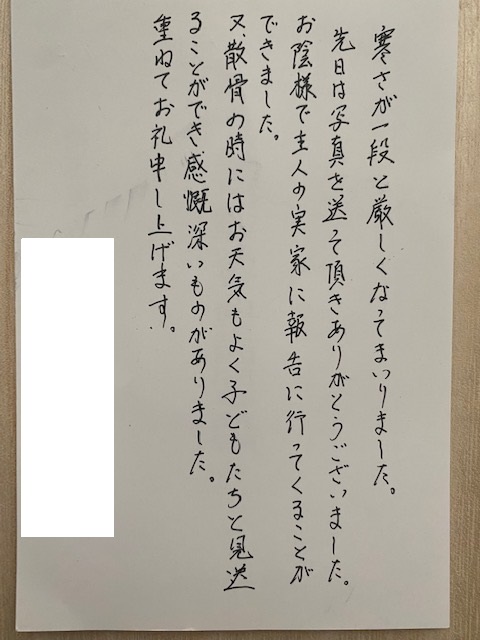 寒さが一段と厳しくなってまいりました。
先日は写真を送って頂きありがとうございました。
お陰様で主人の実家に報告に行ってくることが
できました。
又、散骨の時にはお天気もよく子どもたちと見送
ることができ、感慨深いものがありました。
重ねてお礼申し上げます。